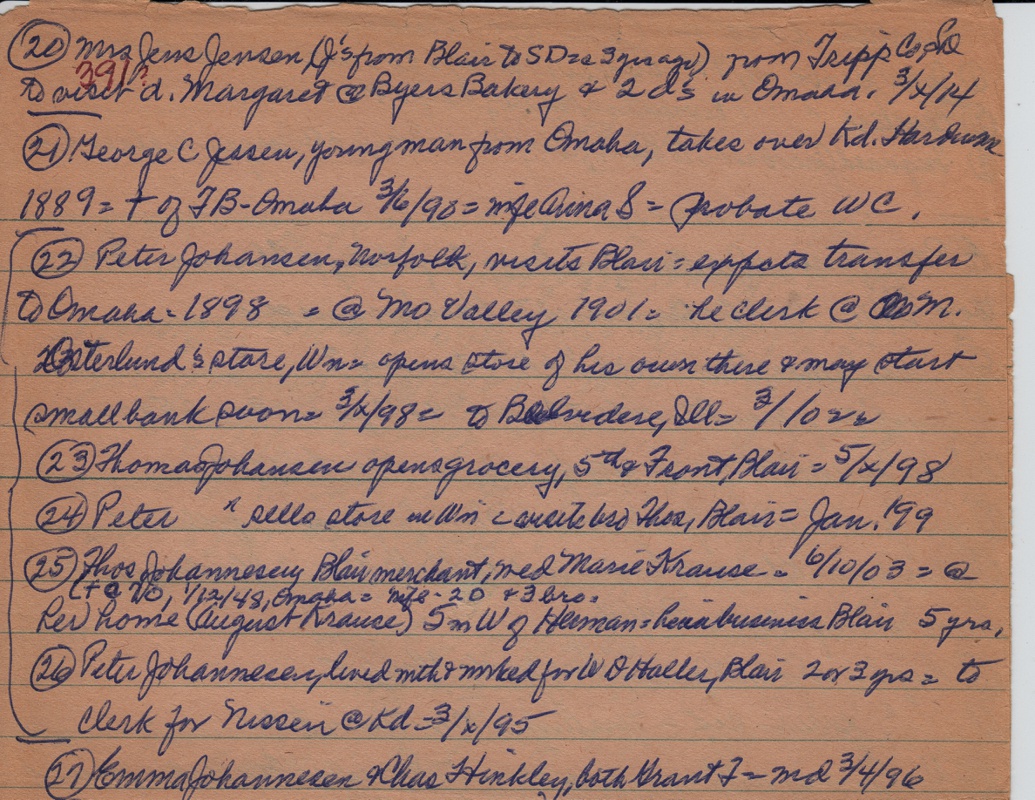 (20) Mrs Jens Jensen, (J's from Blair to SD = 3 yrs ago) from Tripp Co, SD
391?
to visit d. Margaret @ Byers Bakery & 2 ds in Omaha. 3/4/14
(21) George C Jessen, young man from Omaha, takes over Kd. Hardware
1889 = + of TB - Omaha 3/6/98 = wife Anna S = probate WC.
(22) Peter Johansen, Norfolk, visits Blair = expects transfer
to Omaha - 1898 = @ Mo Valley 1901 = he clerk @ M.
Osterlund's store, Wn = opens store of his own there & may start
small bank soon = 3/x/98 = to Belvidere, Ill = 3/10 =
(23) Thomas Johansen opens grocery, 5th & Front, Blair = 5/x/98
(24) Peter " sells store in Wn = bro Thos, Blair = Jan. '99
(25) Thos Johannesen, Blair merchant, wed Marie Krause = 6/10/03 = @
(+ @ 70, 1/12/48, Omaha = wife - 2D & 3 bro =
her home (August Krause) 5 m W of Herman = he in business Blair 5 yrs.
(26) Peter Johannesen, lived with & worked for W D Haller, Blair 2 or 3 yrs = to
clerk for Nissen @ Kd = 3/x/95
(27) Emma Johannesen & Chas Hinkley, both Grant T = md 3/4/96